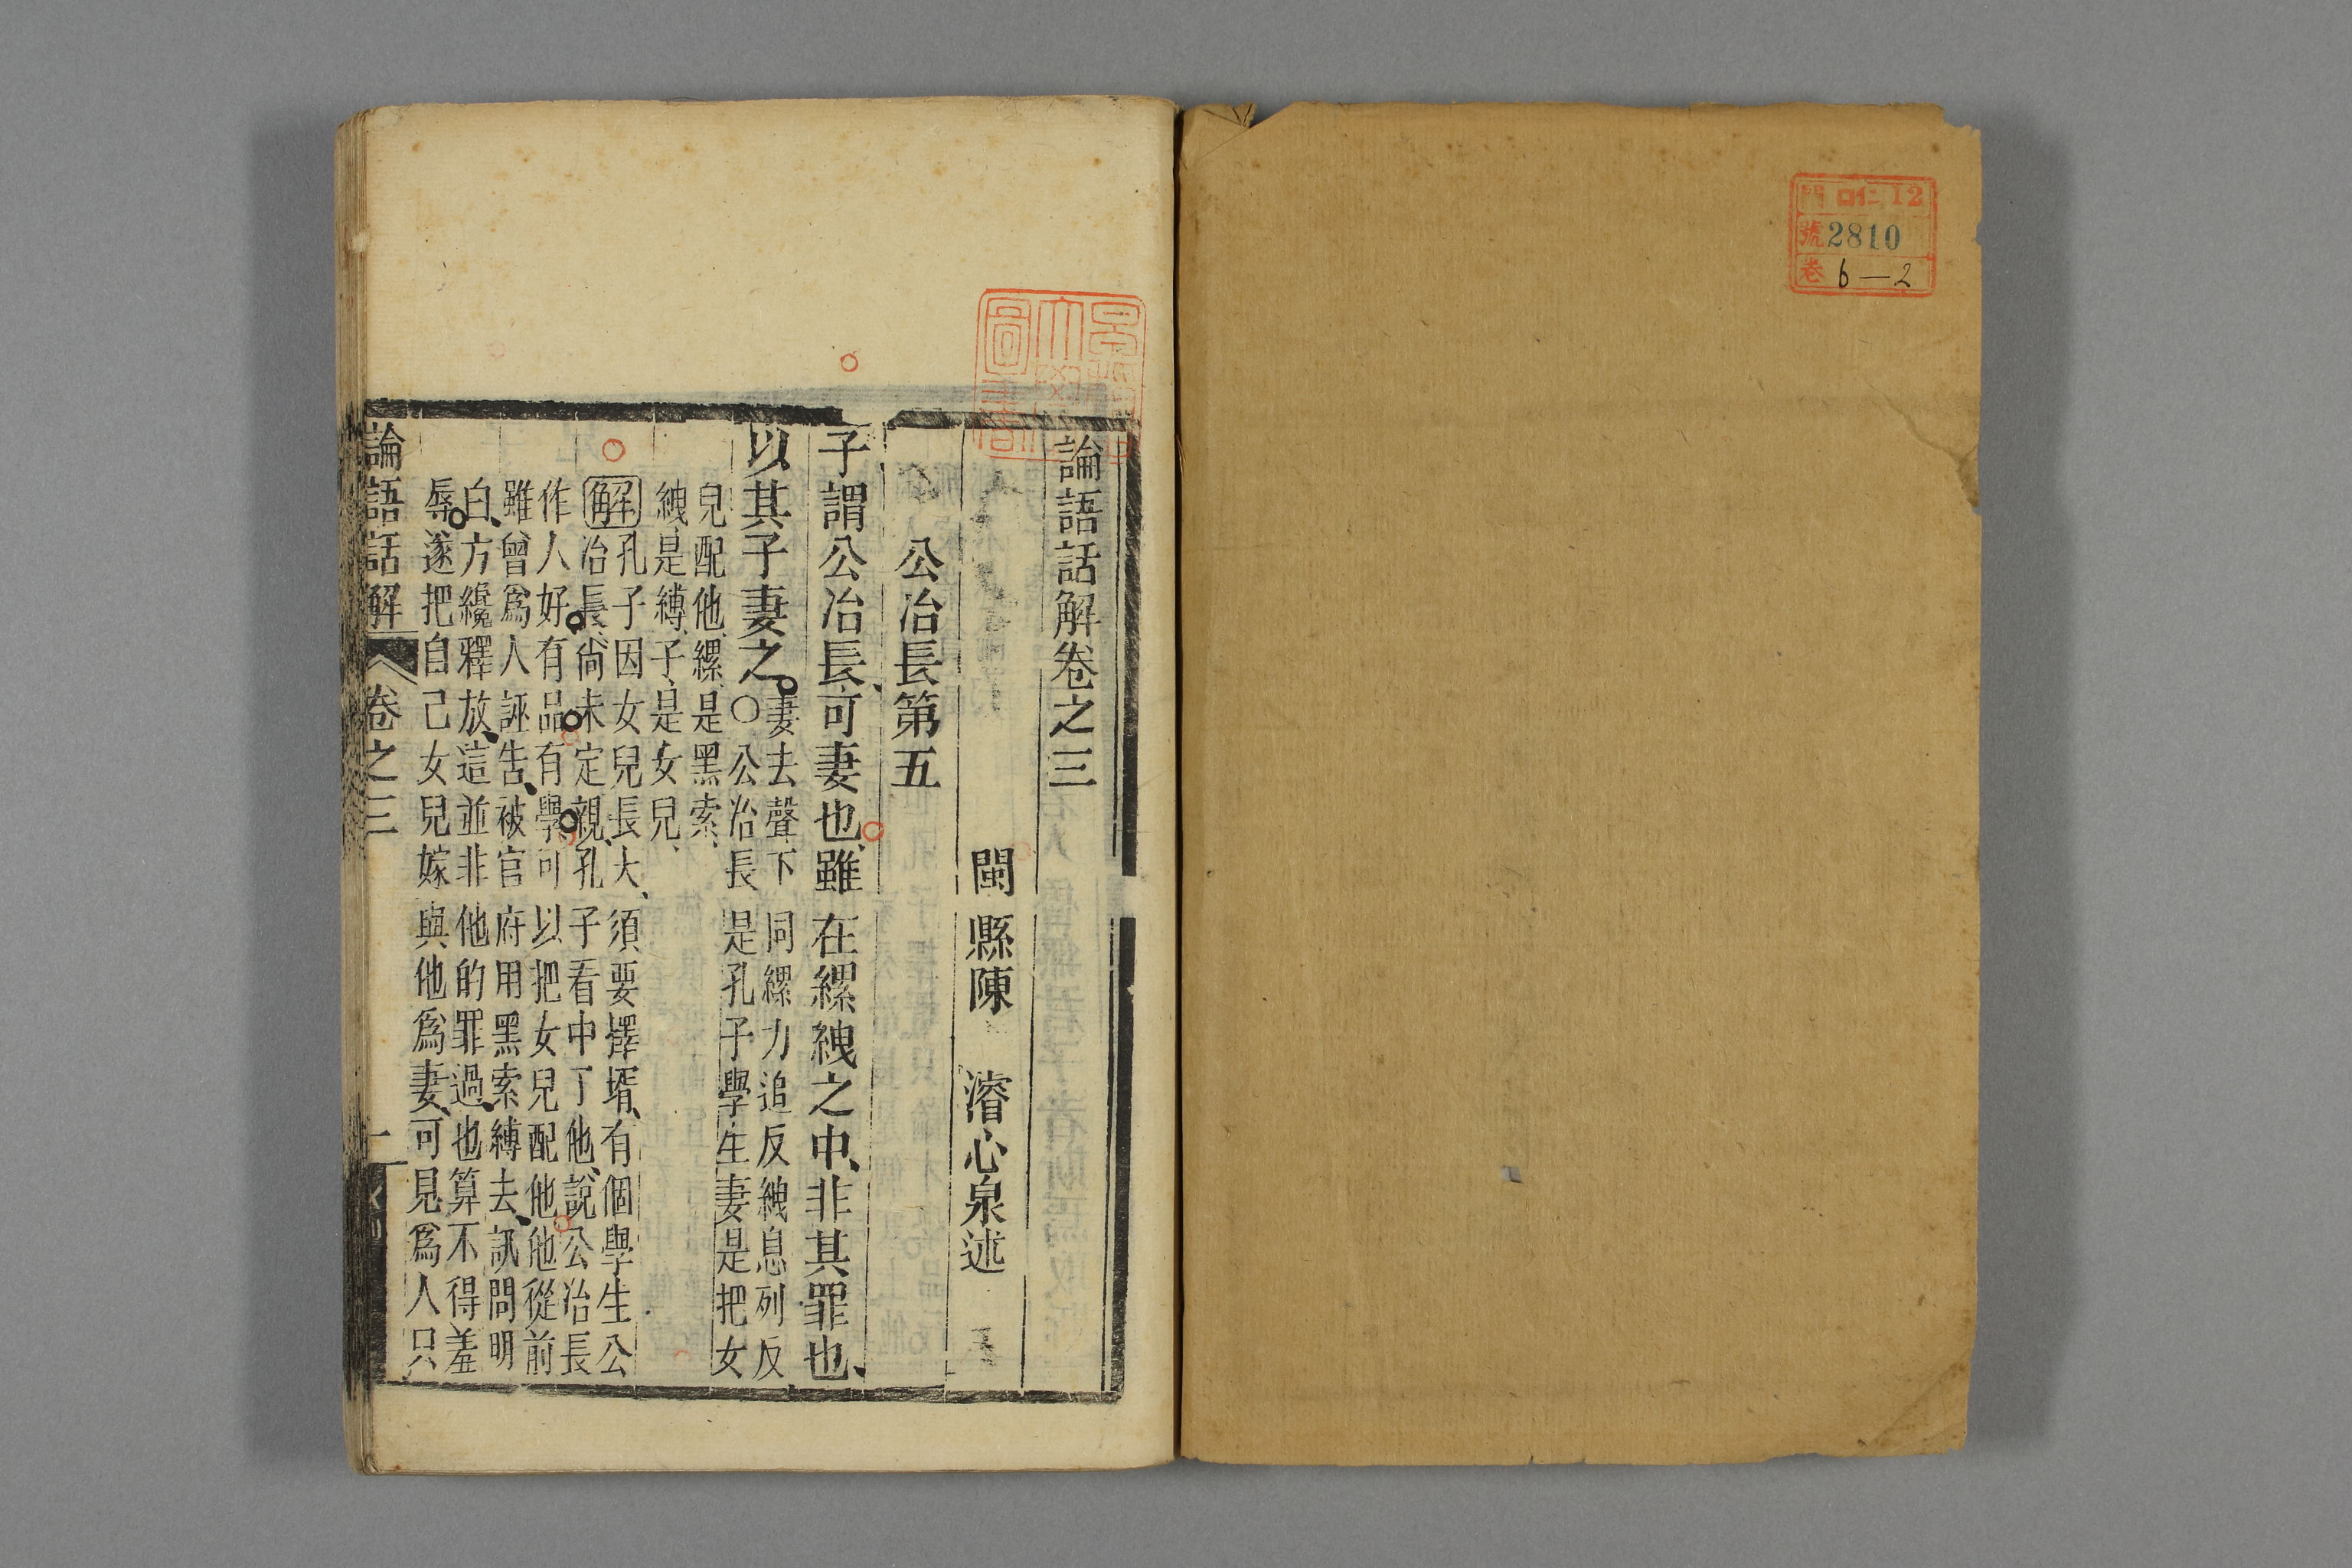 門 口仁 12
號 2810
卷 6—2
論語話解卷之三
閩縣陳 濬心泉述
公冶長第五
子謂公冶長、可妻也、雖在縲絏之中、非其罪也、
以其子妻之。
妻去聲下同縲力追反絏息列反
○公冶長是孔子學生妻是把女
兒配他、縲、是黑索、
絏是縛、子、是女兒、
解孔子因女兒長大、須要擇壻、有個學生公
冶長、尚未定親、孔子看中了他、說公冶長
作人好有品有學可以把女兒配他他從前
雖曾爲人誣告、被官府用黑索縛去、訊問明
白、方纔釋放、這並非他的罪過、也算不得羞
辱。遂把自己女兒嫁與他爲妻、可見爲人只
論語話解 卷之三 一